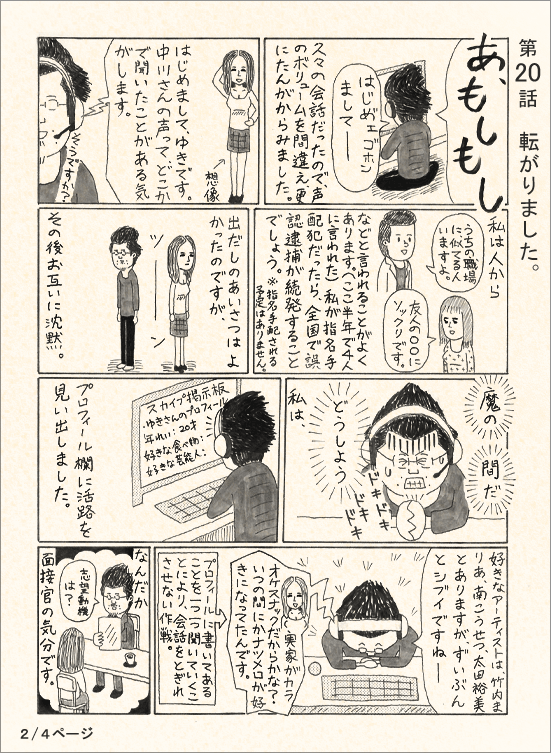 第20話 転がりました。
あ、もしもし
はじめェゴホン
まして――
久々の会話だったので、声
のボリュームを間違え更
にたんがからみました。
想像
はじめまして、ゆきです。
中川さんの声って、どこか
で聞いたことがある気
がします。
そうですか?
私は人から
うちの職場
に似てる人
いますよ。
友人の〇〇に
ソックリです。
などと言われることがよく
あります。(ここ半年で4人
に言われた)私が指名手
配犯だったら、全国で誤
認逮捕が続発すること
でしょう。※指名手配される
予定はありません。
出だしのあいさつはよ
かったのですが、
ツーン
その後お互いに沈黙。
魔の
間だ
ドキドキ
ドキドキ
どうしよう
私は、
スカイプ掲示板
・ゆきさんのプロフィール
年れい:20才
好きな食べ物:
好きな芸能人:
プロフィール欄に活路を
見い出しました。
好きなアーティストは竹内ま
りあ、南こうせつ、太田裕美
とありますが、ずいぶん
とシブイですねー
実家がカラ
オケスナックだからかな?
いつの間にかナツメロが好
きになってたんです。
プロフィールに書いてある
ことを一つ一つ聞いていくこ
とにより、会話をとぎれ
させない作戦。
なんだか
志望動機
は?
面接官の気分です。
2/4ページ